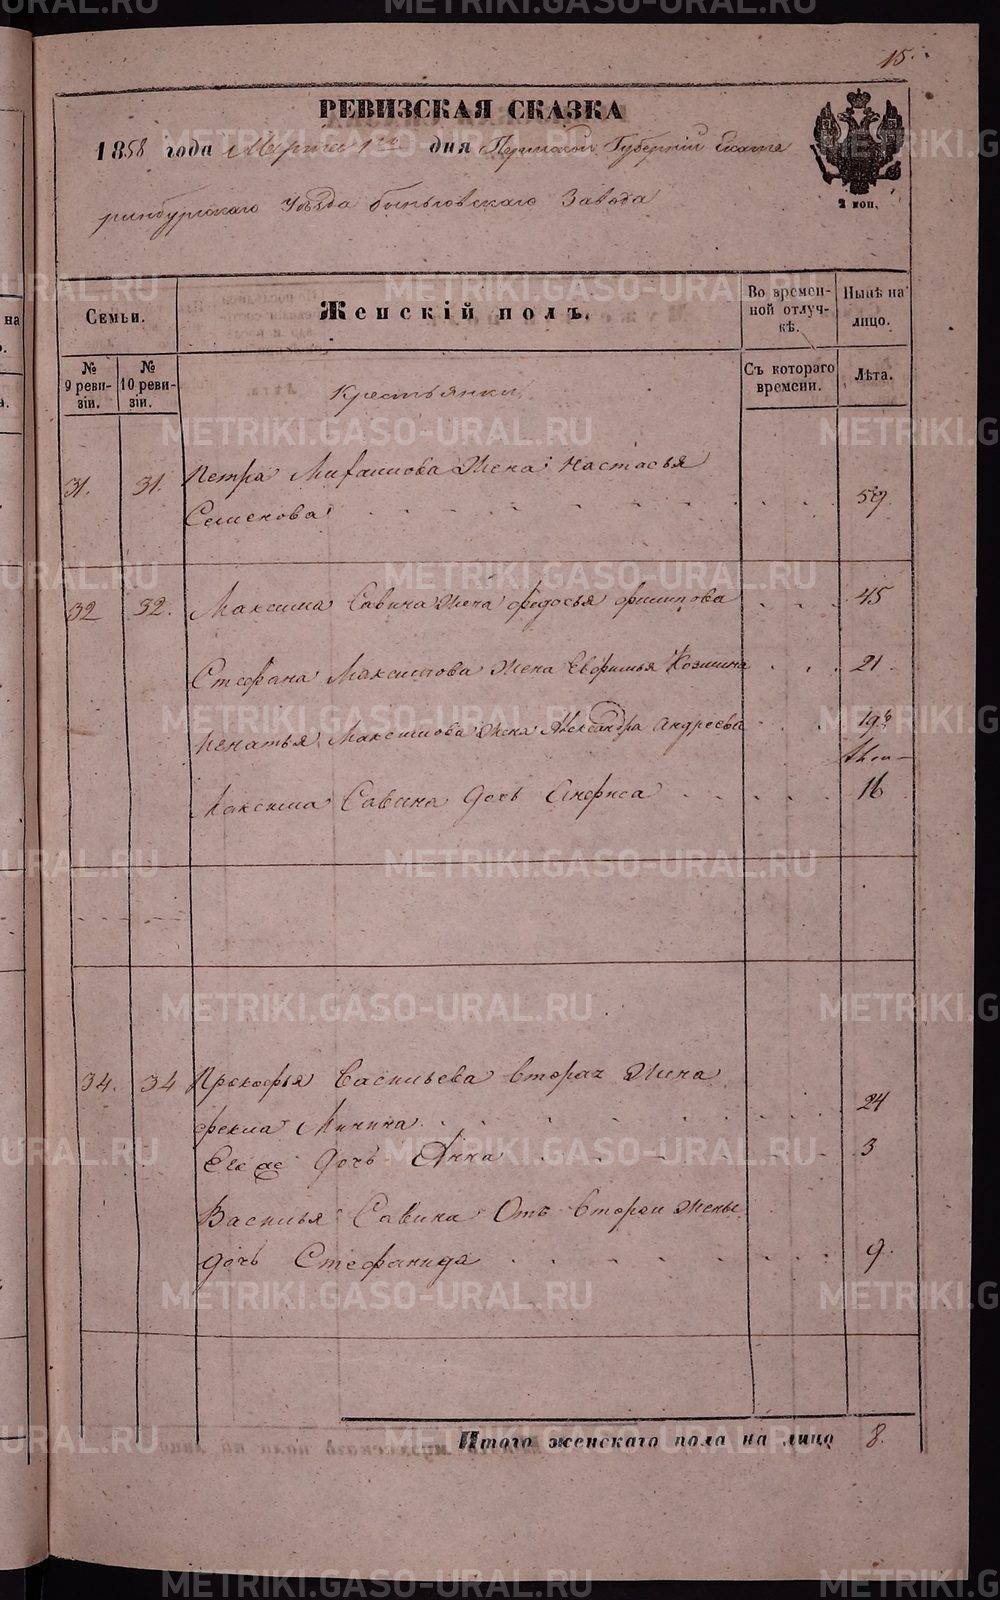 15.
РЕВИЗСКАЯ СКАЗКА
1858 года Марта 1го дня Пермской Губерніи Екате
ринбургскаго Уѣзда Быньговскаго Завода
2 коп.
Семьи.
Женскій полъ.
Во времен-
ной отлуч-
кѣ.
Нынѣ на
лицо.
№
9 реви-
зіи.
№
10 реви-
зіи.
Крестьянки
Съ котораго
времени.
Лѣта.
31. 31. Петра Михаилова Жена Настасья
Семенова 59
32 32. Максима Савина Жена Федосья Филипова 45
Стефана Максимова Жена Евфимья Козмина 21
Игнатья Максимова Жена Александра Андреева 19½
Максима Савина дочь Анфиса 16
34. 34 Прокофья Васильева вторая Жена
Фекла Минина 24
Ее же дочь Анна 3
Василья Савина Отъ второй Жены
дочь Стефанида 9.
Итого женскаго пола на лицо 8.
METRIKI.GASO-URAL.RU